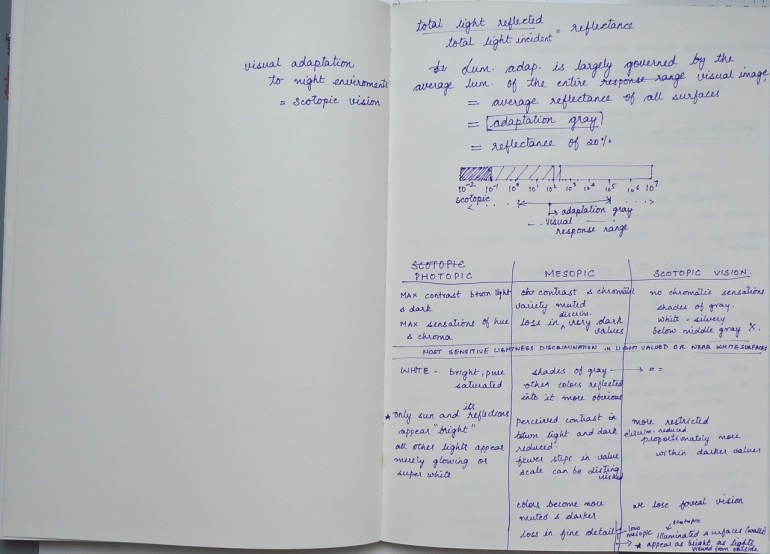 visual adaptation
to night enviroments
= scotopic vision
total light reflected
total light incident = reflectance
Lum. adap. is largely governed by the
average lum. of the entire response range visual image,
= average reflectance of all surfaces
= [adaptation gray]
= reflectance of 20%
10-2 10-1 10° 10¹ 10² 10³ 10⁴ 10⁵ 10⁶ 10⁷
scotopic
adaptation gray
visual
response range
SCOTOPIC
PHOTOPIC
MAX contrast btwn light
& dark
MAX sensations of hue
& chroma
MESOPIC
contrast & chromatic
variety muted
discrim.
loss in very dark
values
SCOTOPIC VISION.
no chromatic sensations
shades of gray.
white - silvery
below middle gray X.
MOST SENSITIVE LIGHTNESS DISCRIMINATION IN LIGHT VALUES OR NEAR WHITE SURFACES
WHITE - bright, pure
saturated
shades of gray
other colors reflected
into it more obvious
= =
its
* only sun and reflections
appear "bright"
all other lights appear
merely glowing or
super white
Perceived contrast in
btwn light and dark
reduced.
fewer steps in value
scale can be disting
uished
more restricted
discrim. reduced
proportionately more
within darker values
colors become more
muted & darker
loss in fine detail
we lose foveal vision
low
mesopic
scotopic
illuminated surfaces (walls)
* appear as bright as lights
viewed from outside.